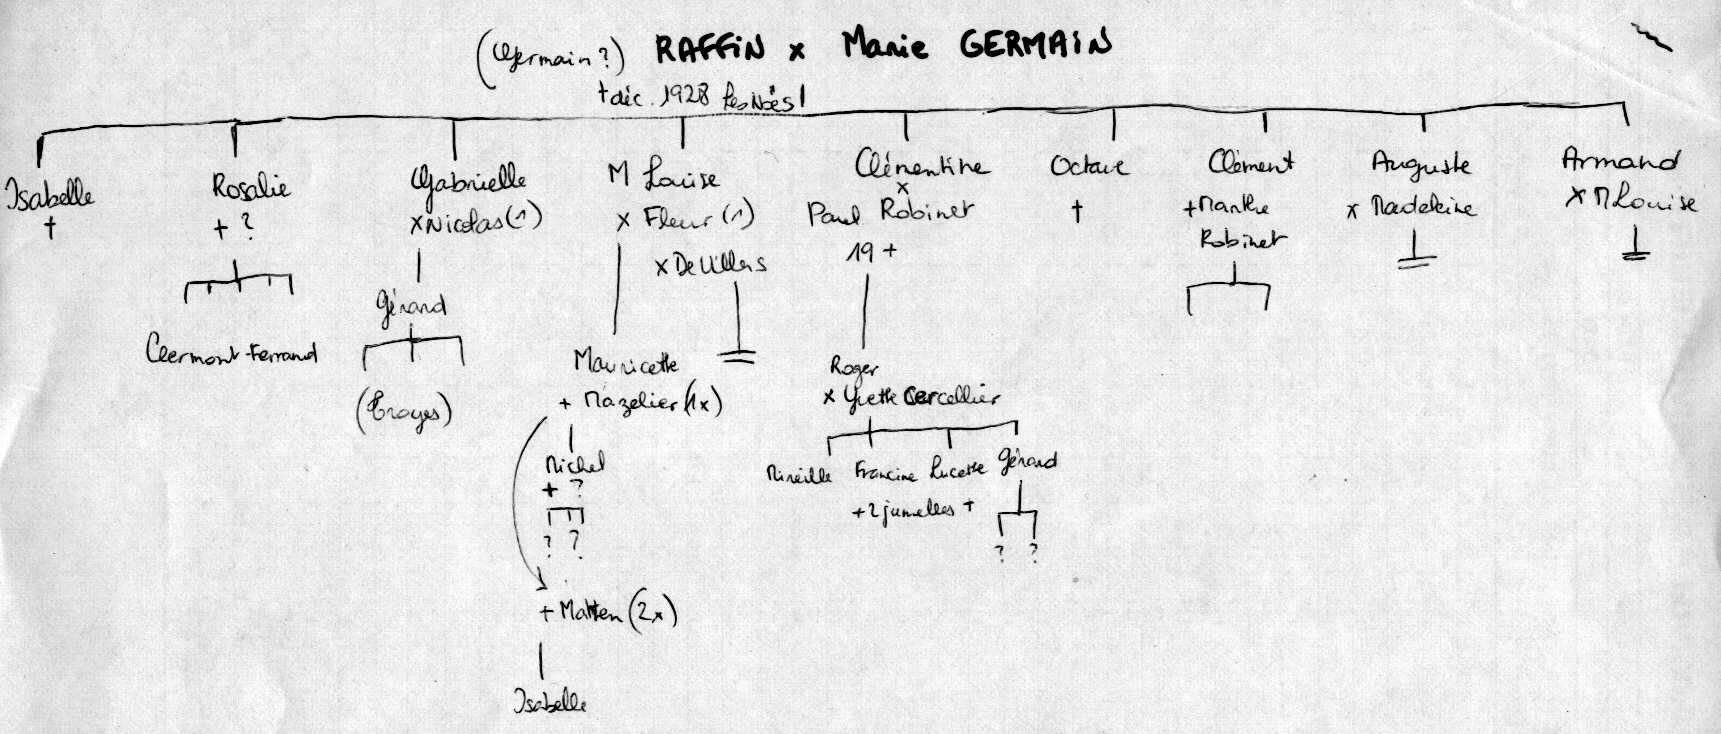 (Germain?) RAFFIN x Marie GERMAIN
† déc. 1928 Les Noës
Isabelle
†
Rosalie
+ ?
Clermont-Ferrand
Gabrielle
x Nicolas (1)
Gérard
(Troyes)
M Louise
x Fleur (1)
x Devillers
Mauricette
+ Mazelier (1x)
Michel
+ ?
? ?
+ Matten (2x)
Isabelle
Clémentine
x
Paul Robinet
19 +
Roger
x Yvette Cercellier
Mireille Francine Lucette Gérard
+ 2 jumelles †
? ?
Octave
†
Clément
+ Marthe
Robinet
Auguste
x Madeleine
Armand
x M Louise